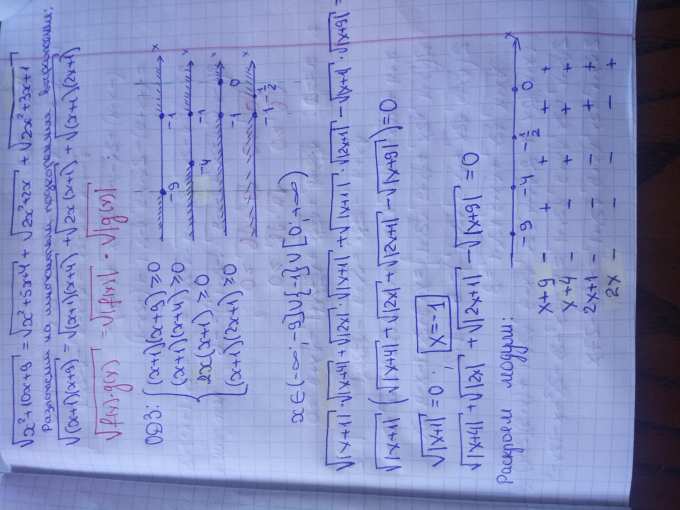 √(x²+10x+9) = √(x²+5x+4) + √(2x²+2x) + √(2x²+3x+1)
Разложим на множители подкоренные выражения:
√((x+1)(x+9)) = √((x+1)(x+4)) + √(2x(x+1)) + √((x+1)(2x+1))
√(f(x)·g(x)) = √|f(x)| · √|g(x)| :
ОДЗ: { (x+1)(x+9) ≥ 0 -9 -1 x
(x+1)(x+4) ≥ 0 -4 -1 x
2x(x+1) ≥ 0 -1 0 x
(x+1)(2x+1) ≥ 0 -1 -½ x
x ∈ (-∞; -9] ∪ {-1} ∪ [0; +∞)
√|x+1| · √|x+4| + √|2x| · √|x+1| + √|x+1| · √|2x+1| - √|x+1| · √|x+9| =
√|x+1| (√|x+4| + √|2x| + √|2x+1| - √|x+9|) = 0
√|x+1| = 0 ; x = -1
√|x+4| + √|2x| + √|2x+1| - √|x+9| = 0
Раскроем модули:
-9 -4 -½ 0 x
x+9 - + + + +
x+4 - - + + +
2x+1 - - - + +
2x - - - - +